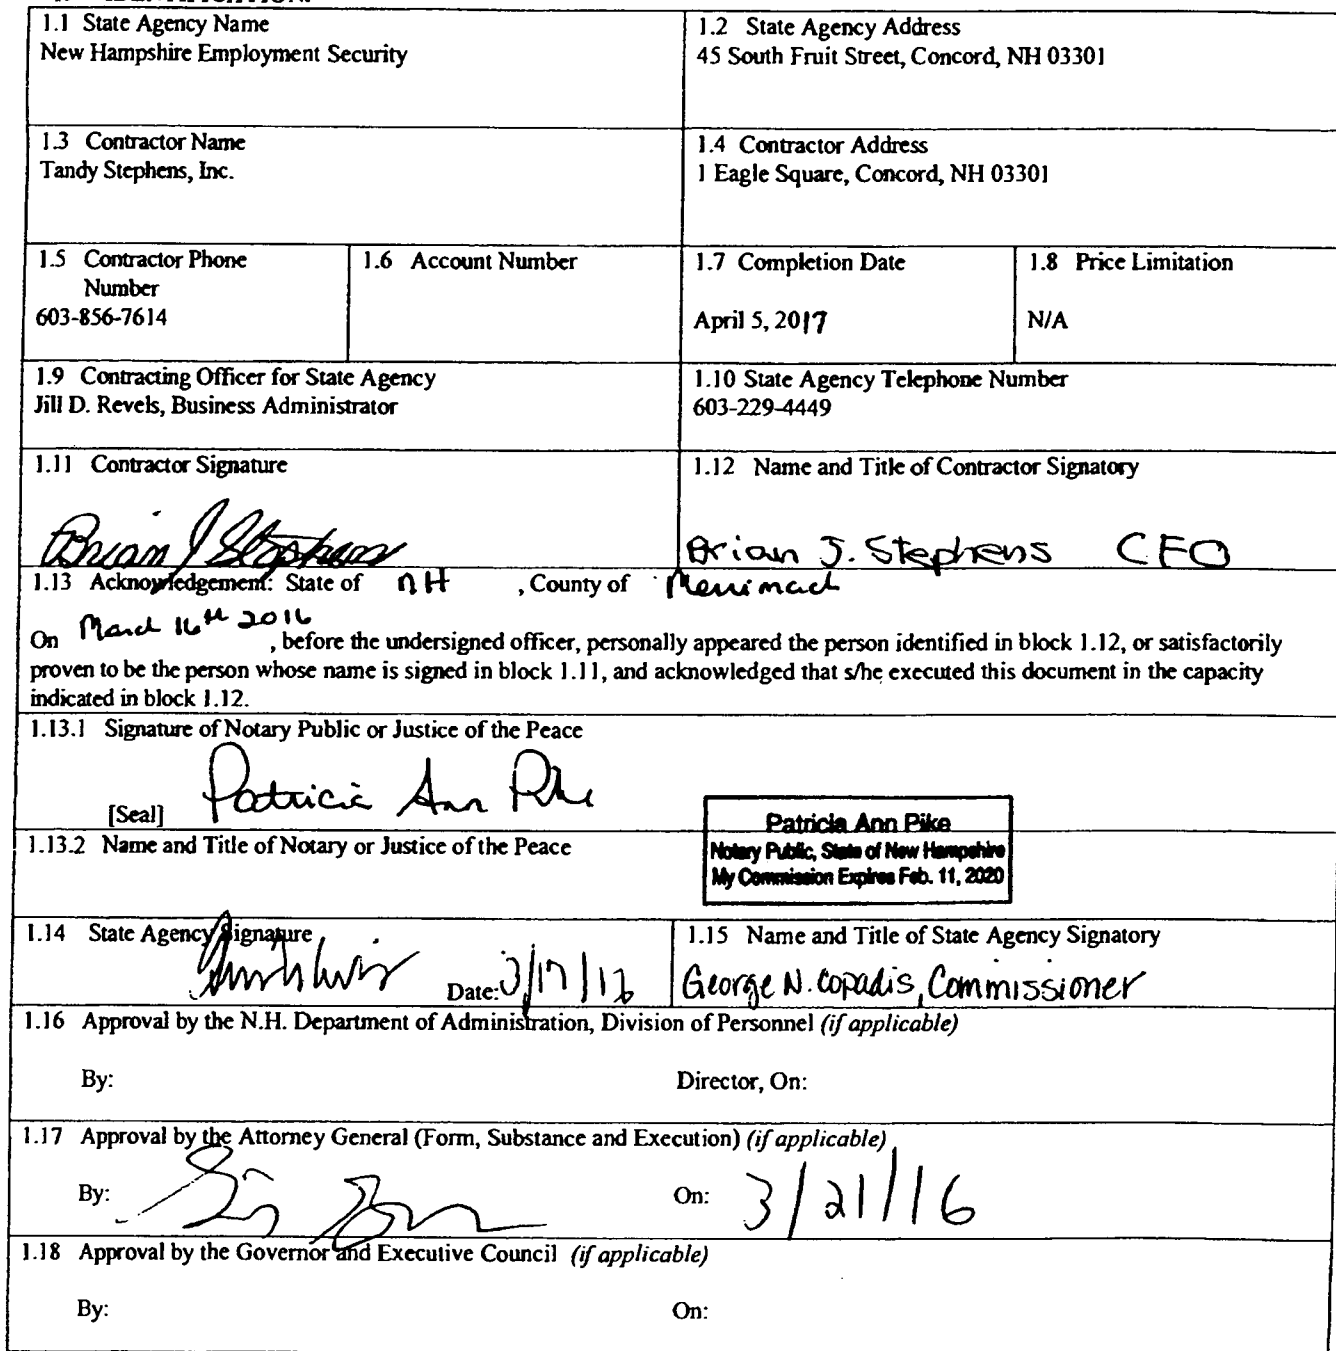 1.1 State Agency Name
New Hampshire Employment Security
1.2 State Agency Address
45 South Fruit Street, Concord, NH 03301
1.3 Contractor Name
Tandy Stephens, Inc.
1.4 Contractor Address
1 Eagle Square, Concord, NH 03301
1.5 Contractor Phone
Number
603-856-7614
1.6 Account Number
1.7 Completion Date
April 5, 2017
1.8 Price Limitation
N/A
1.9 Contracting Officer for State Agency
Jill D. Revels, Business Administrator
1.10 State Agency Telephone Number
603-229-4449
1.11 Contractor Signature
Brian J Stephens
1.12 Name and Title of Contractor Signatory
Brian J. Stephens CFO
1.13 Acknowledgement: State of NH , County of Merrimack
On March 16th 2016 , before the undersigned officer, personally appeared the person identified in block 1.12, or satisfactorily
proven to be the person whose name is signed in block 1.11, and acknowledged that s/he executed this document in the capacity
indicated in block 1.12.
1.13.1 Signature of Notary Public or Justice of the Peace
Patricia Ann Pike
[Seal]
1.13.2 Name and Title of Notary or Justice of the Peace
Patricia Ann Pike
Notary Public, State of New Hampshire
My Commission Expires Feb. 11, 2020
1.14 State Agency Signature
Date: 3/17/16
1.15 Name and Title of State Agency Signatory
George N. Copadis, Commissioner
1.16 Approval by the N.H. Department of Administration, Division of Personnel (if applicable)
By: Director, On:
1.17 Approval by the Attorney General (Form, Substance and Execution) (if applicable)
By: On: 3/21/16
1.18 Approval by the Governor and Executive Council (if applicable)
By: On: